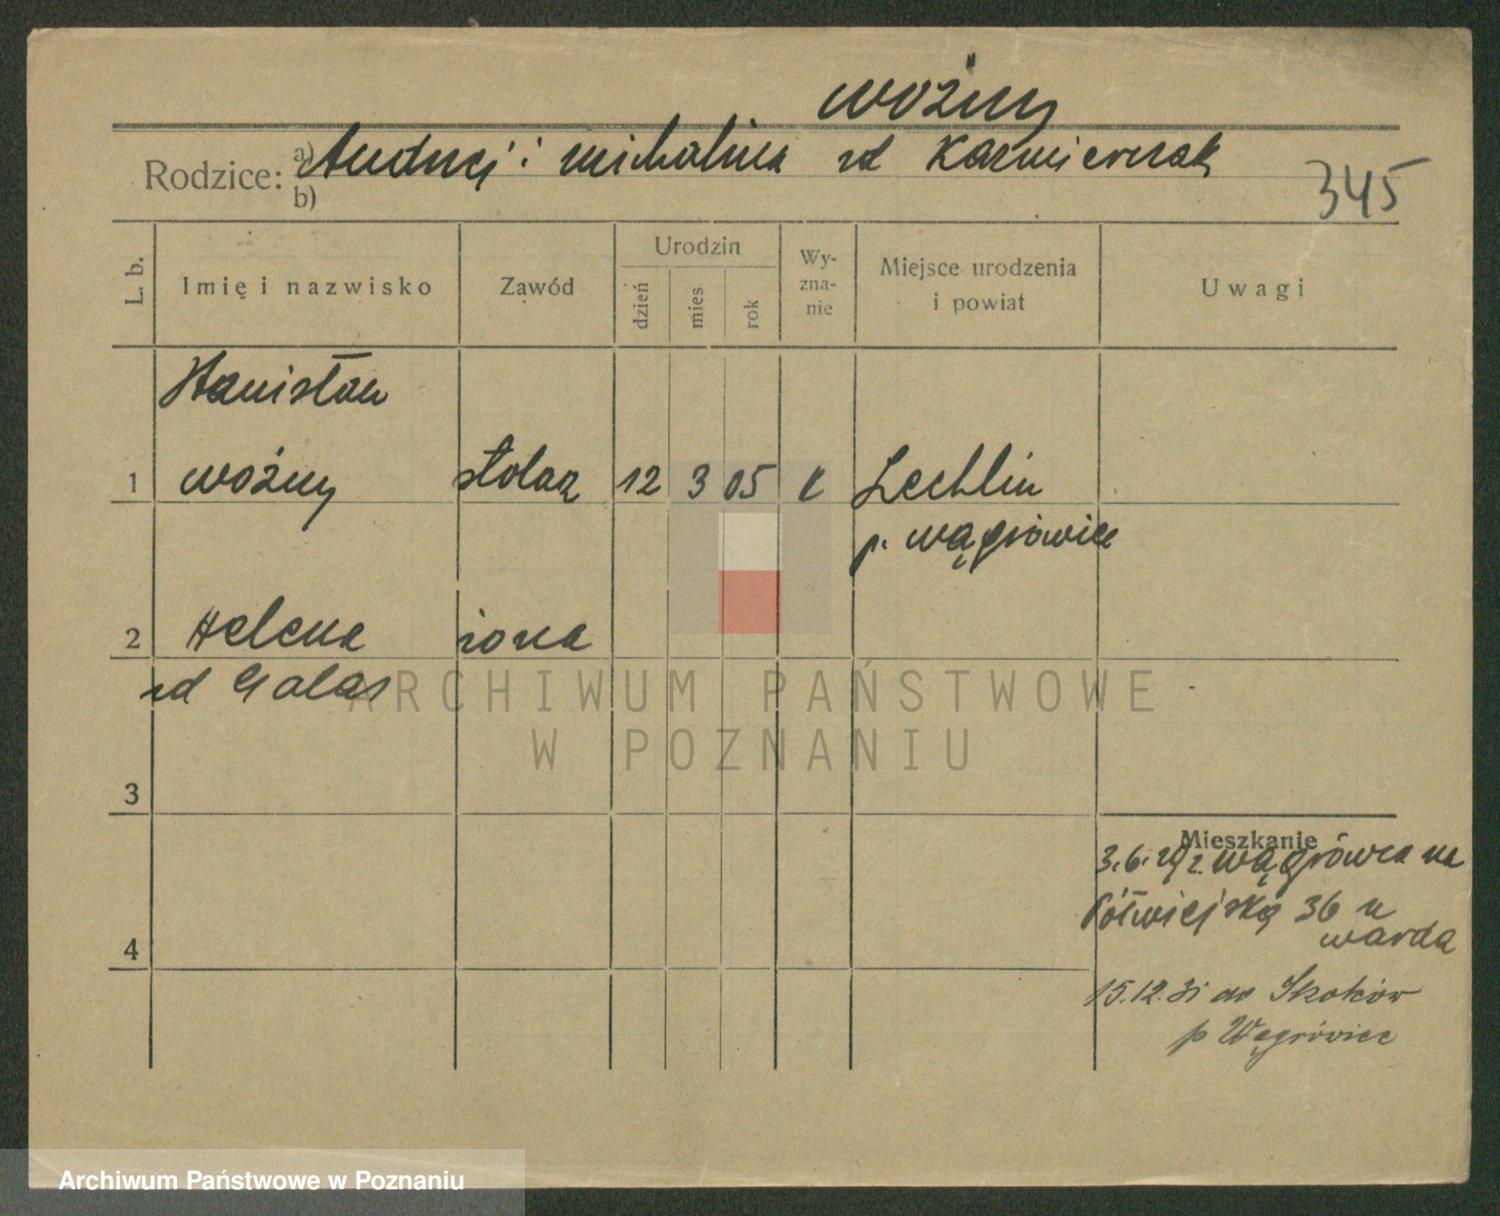 Woźny
Rodzice: a) Andrzej i Michalina zd Kaźmierczak
b)
345
L. b.
Imię i nazwisko
Zawód
Urodzin
dzień
mies
rok
Wy-
zna-
nie
Miejsce urodzenia
i powiat
Uwagi
Stanisław
1 Woźny stolarz 12 3 05 k Lechlin
p. Wągrowiec
2 Helena żona
zd Galas
3
4
Mieszkanie
3.6.29 z Wągrówca na
Półwiejską 36 u
Warda
15.12.31 do Skoków
p Wągrówiec
ARCHIWUM PAŃSTWOWE
W POZNANIU
Archiwum Państwowe w Poznaniu